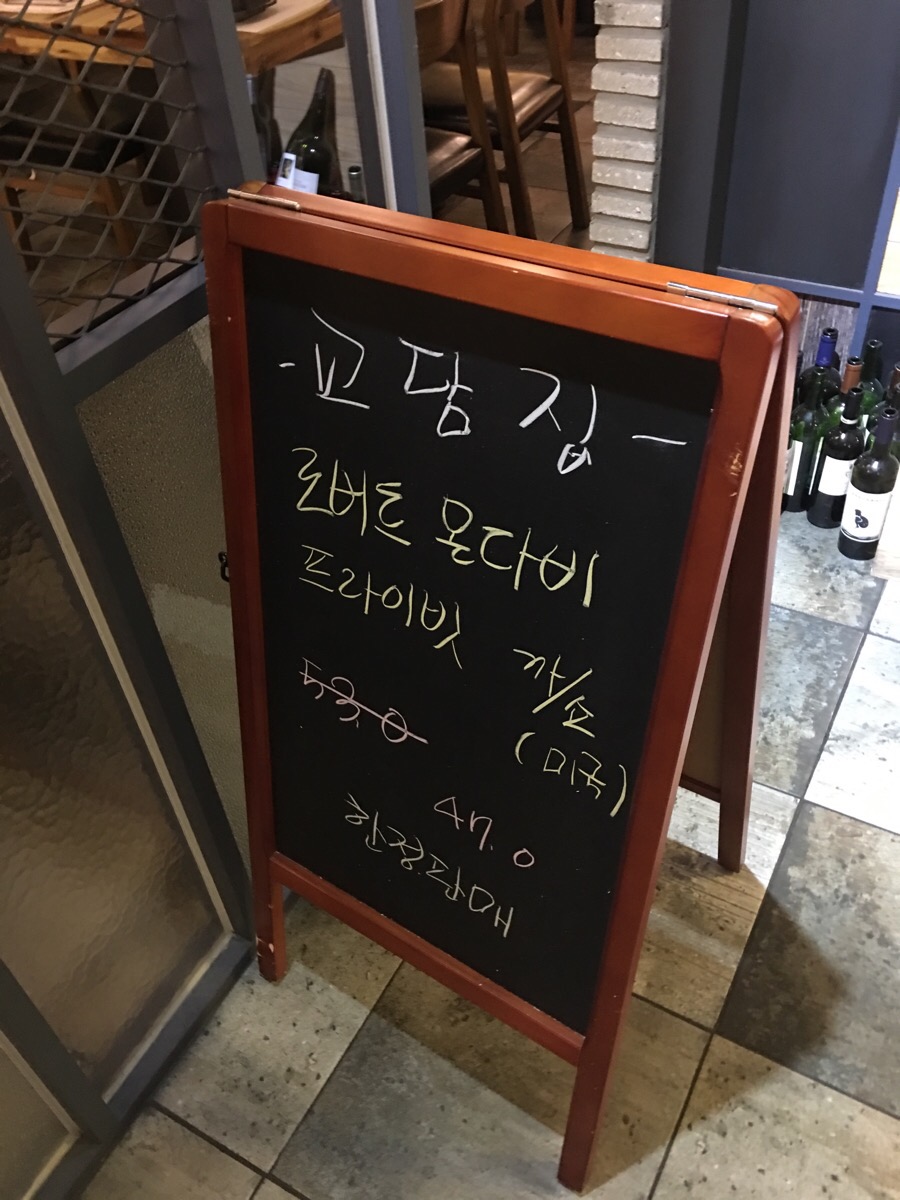 - 교담집 -
로버트 몬다비
프라이빗 까/쇼
(미국)
47.0
한정판매